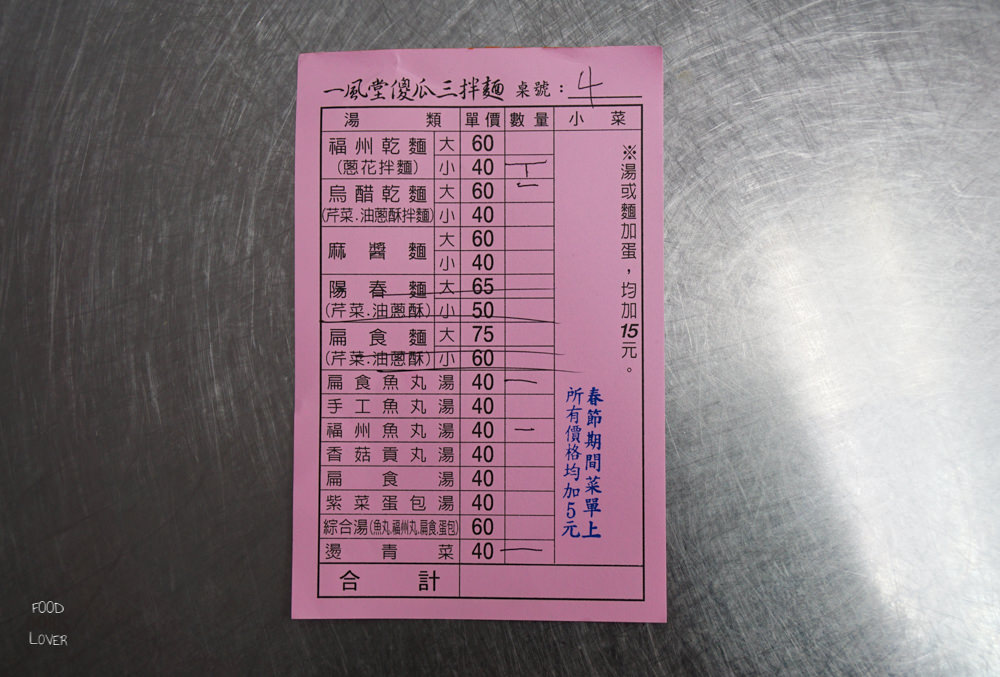 一風堂傻瓜三拌麵 桌號：4
湯類 單價 數量 小菜
福州乾麵 大 60
(蔥花拌麵) 小 40
烏醋乾麵 大 60
(芹菜.油蔥酥拌麵) 小 40
麻醬麵 大 60
小 40
陽春麵 大 65
(芹菜.油蔥酥) 小 50
扁食麵 大 75
(芹菜.油蔥酥) 小 60
扁食魚丸湯 40 一
手工魚丸湯 40
福州魚丸湯 40 一
香菇貢丸湯 40
扁食湯 40
紫菜蛋包湯 40
綜合湯(魚丸.福州丸.扁食.蛋包) 60
燙青菜 40 一
合計
※湯或麵加蛋，均加15元。
春節期間菜單上
所有價格均加5元
FOOD
LOVER